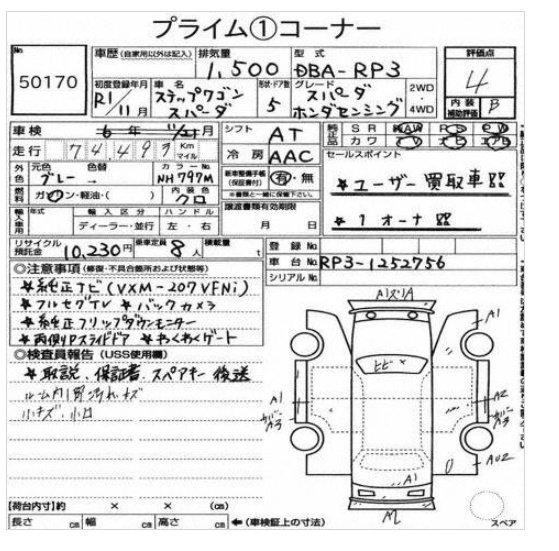 プライム①コーナー
No. 50170
車歴(自家用以外は記入) 排気量 1,500 型式 DBA-RP3
評価点 4
内装補助評価 B
初度登録年月 R1/11月 車名 ステップワゴン スパーダ 形状・ドア数 5 グレード スパーダ ホンダセンシング 2WD 4WD
車検 6年11/21月 シフト AT
走行 74,497 Km マイル 冷房 AAC
純正品 SR AW PS PW カワ TV ナビ
セールスポイント
外色 元色 グレー 色替 カラーNo. NH797M
燃料 ガソリン・軽油・( ) 内装色 クロ
新車整備手帳(保証書付) 有・無
★ユーザー買取車!!
★1オーナ!!
輸入車用 年式 輸入区分 ディーラー・並行 ハンドル 左・右
譲渡書類有効期限 月 日
リサイクル預託金 10,230円 乗車定員 8人 積載量 t
登録No.
車台No. RP3-1252756
シリアルNo.
◎注意事項(修復・不具合箇所および状態等)
★純正ナビ(VXM-207VFNi)
★フルセグTV ★バックカメラ
★純正フリップダウンモニター
★両側Pスライドドア ★わくわくゲート
◎検査員報告(USS使用欄)
★取説、保証書、スペアキー後送
ルーム内1部汚れ、キズ
小キズ、小凹
【荷台内寸】約 × × (cm)
長さ cm 幅 cm 高さ cm ←(車検証上の寸法)
A1
ヒビ×
A1
A3
A2
A3
AU2
A1
A2
スペア